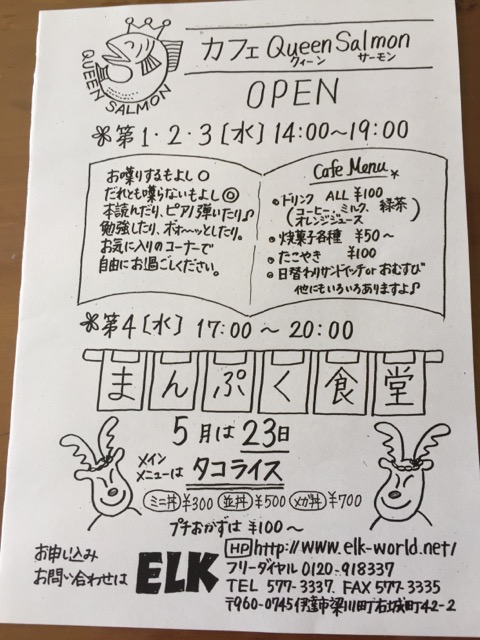 QUEEN SALMON
カフェ Queen Salmon
クィーン サーモン
OPEN
❇第1・2・3[水] 14:00～19:00
お喋りするもよし○
だれとも喋らないもよし◎
本読んだり、ピアノ弾いたり♪
勉強したり、ボォ～ッとしたり。
お気に入りのコーナーで
自由にお過ごしください。
Cafe Menu *
・ドリンク ALL ¥100
(コーヒー ミルク 緑茶
オレンジジュース)
・焼菓子各種 ¥50～
・たこやき ¥100
・日替わりサンドイッチor おむすび
他にもいろいろありますよ♪
❇第4[水] 17:00～20:00
まんぷく食堂
5月は23日
メイン
メニューは タコライス
ミニ丼¥300 並丼¥500 メガ丼¥700
プチおかずは¥100～
お申し込み
お問い合わせは
ELK
HP http://www.elk-world.net/
フリーダイヤル 0120-918337
TEL 577-3337. FAX 577-3335
〒960-0745 伊達市梁川町右城町42-2